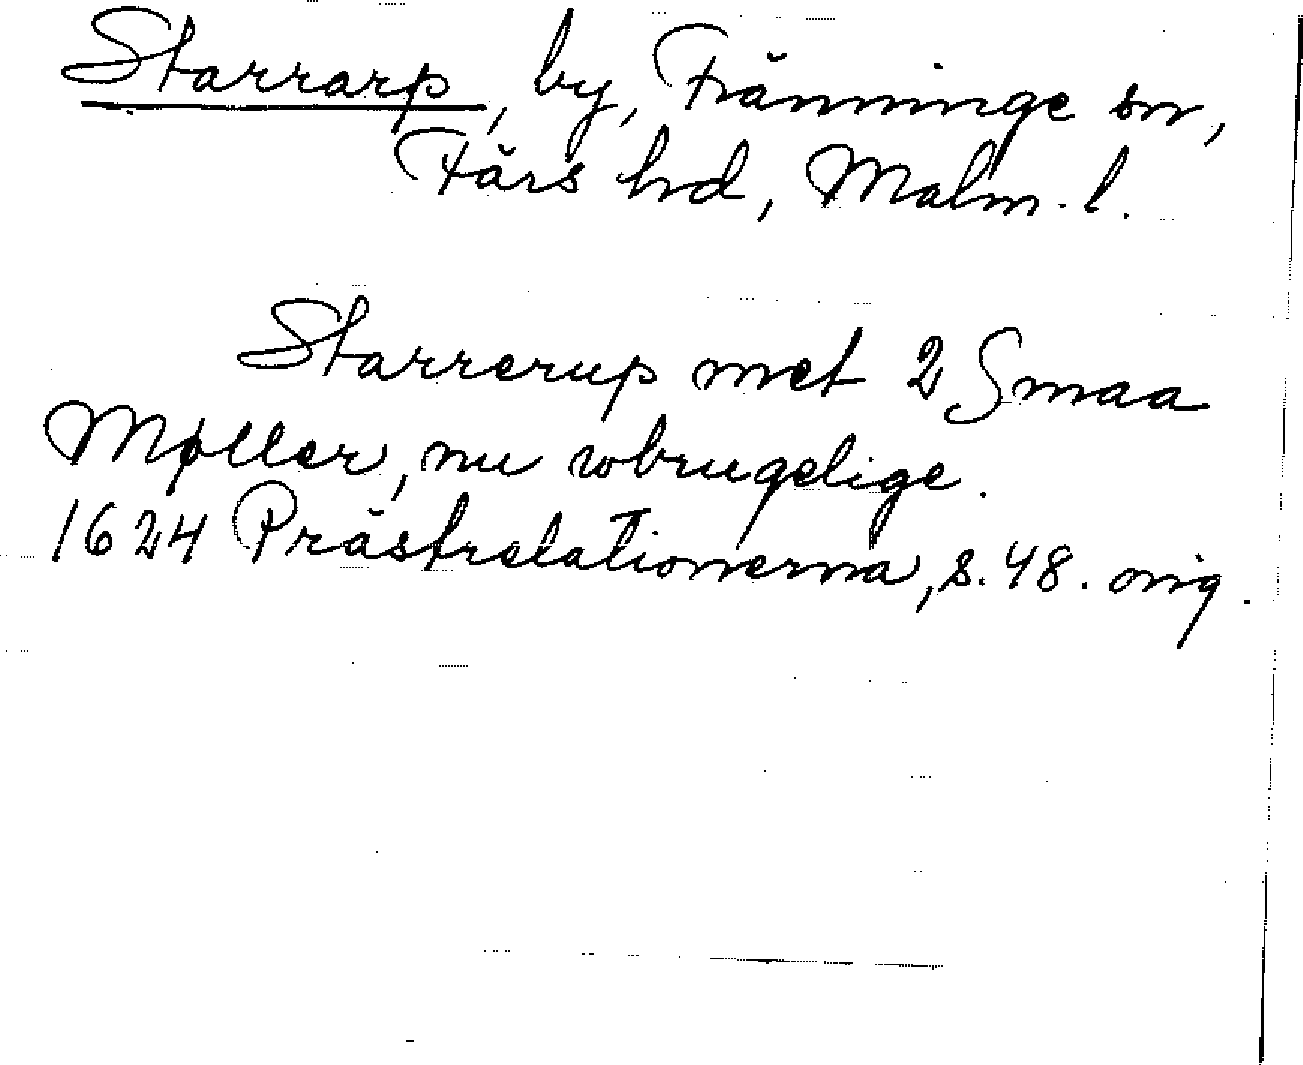 Starrarp, by, Fränninge sn,
Färs hd, Malm. l.
Starrerup met 2 Smaa
Møller, nu wbrugelige.
1624 Prästrelationerna, s. 48. orig.